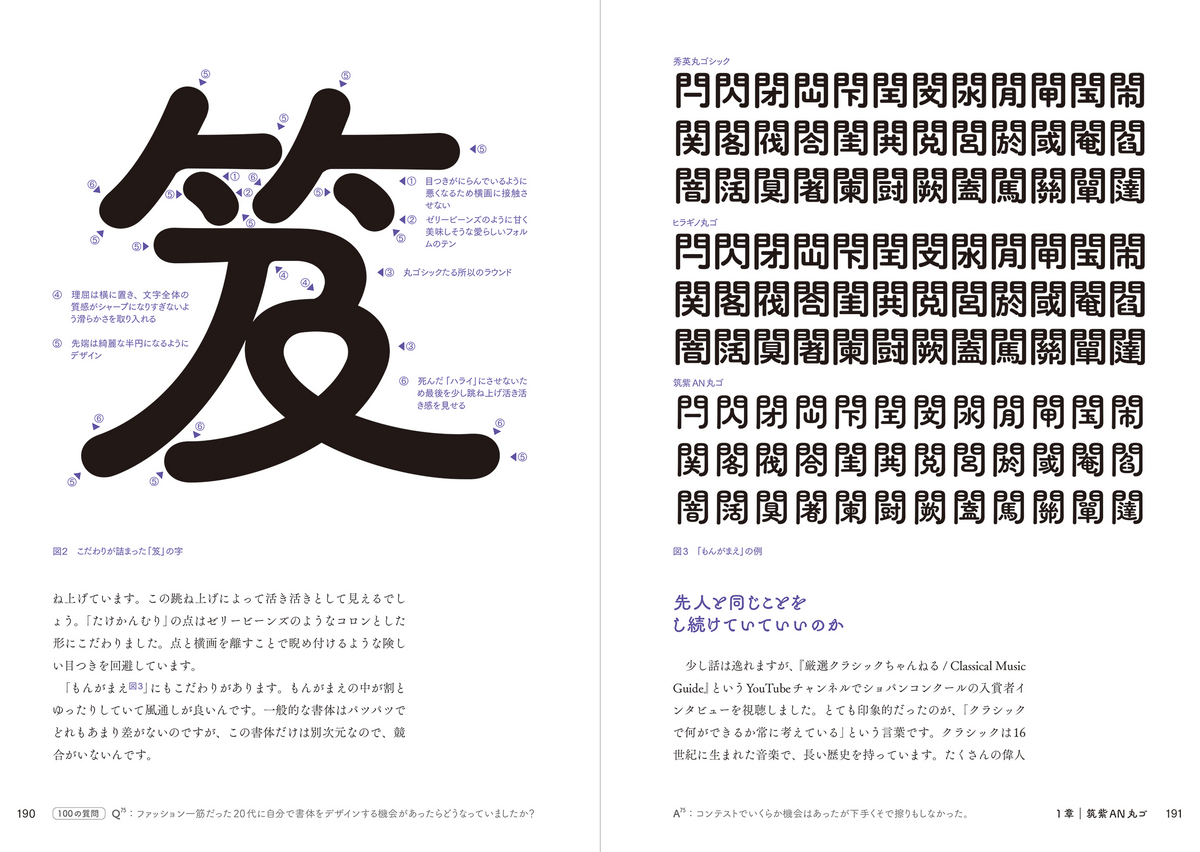 笈
⑤
⑤
⑤
⑤
⑥
①
⑥
⑤
②
⑤
⑤
⑤
⑤
⑤
① 目つきがにらんでいるように
悪くなるため横画に接触さ
せない
② ゼリービーンズのように甘く
美味しそうな愛らしいフォル
ムのテン
④
④
③ 丸ゴシックたる所以のラウンド
④ 理屈は横に置き、文字全体の
質感がシャープになりすぎないよ
う滑らかさを取り入れる
⑤ 先端は綺麗な半円になるように
デザイン
③
⑥ 死んだ「ハライ」にさせないた
め最後を少し跳ね上げ活き活
き感を見せる
⑥
⑥
⑥
⑤
⑤
⑤
図2 こだわりが詰まった「笈」の字
ね上げています。この跳ね上げによって活き活きとして見えるでし
ょう。「たけかんむり」の点はゼリービーンズのようなコロンとした
形にこだわりました。点と横画を離すことで睨め付けるような険し
い目つきを回避しています。
「もんがまえ図3」にもこだわりがあります。もんがまえの中が割と
ゆったりしていて風通しが良いんです。一般的な書体はパツパツで
どれもあまり差がないのですが、この書体だけは別次元なので、競
合がいないんです。
190 100の質問 Q75：ファッション一筋だった20代に自分で書体をデザインする機会があったらどうなっていましたか？
秀英丸ゴシック
閂閃閉閊閇閏閔閖閒閘閠閙
関閣閥閤閨閧閲閭閼閾閹閻
闇闊闃闍闌闘闕闔闖關闡闥
ヒラギノ丸ゴ
閂閃閉閊閇閏閔閖閒閘閠閙
関閣閥閤閨閧閲閭閼閾閹閻
闇闊闃闍闌闘闕闔闖關闡闥
筑紫AN丸ゴ
閂閃閉閊閇閏閔閖閒閘閠閙
関閣閥閤閨閧閲閭閼閾閹閻
闇闊闃闍闌闘闕闔闖關闡闥
図3 「もんがまえ」の例
先人と同じことを
し続けていていいのか
少し話は逸れますが、『厳選クラシックちゃんねる / Classical Music
Guide』というYouTubeチャンネルでショパンコンクールの入賞者イ
ンタビューを視聴しました。とても印象的だったのが、「クラシック
で何ができるか常に考えている」という言葉です。クラシックは16
世紀に生まれた音楽で、長い歴史を持っています。たくさんの偉人
A75：コンテストでいくらか機会はあったが下手くそで擦りもしなかった。
1章｜筑紫AN丸ゴ 191